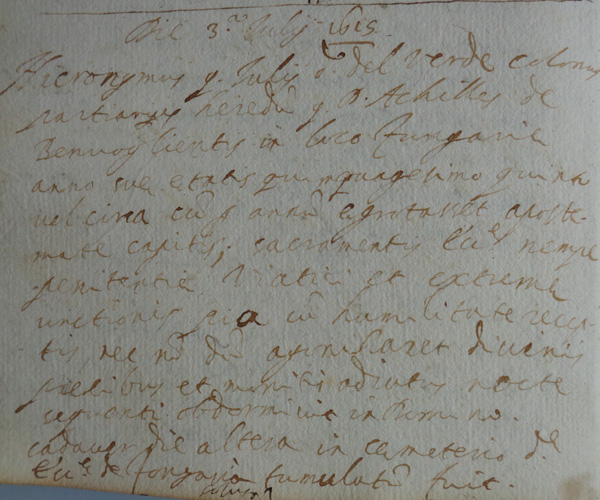 Die 3.a Julij 1615.
Hieronymus q. Julij d. del Verde colonus
partiarius heredū q. D. Achilles de
Benvoglientis in loco Fungarie
anno sue etatis quinquagesimo quinto
vel circa cū annū egrotasset aposte-
mate capitis, sacramentis Ecc.e nempe
penitentie Viatici et extreme
unctionis pia cū humilitate recep-
tis, nec nō dū divinis
precibus et adiutus nocte
sequenti obdormivit in Domino.
cadaver die altera in cemeterio d.e
Ecc.e de fongaria tumulatū fuit.